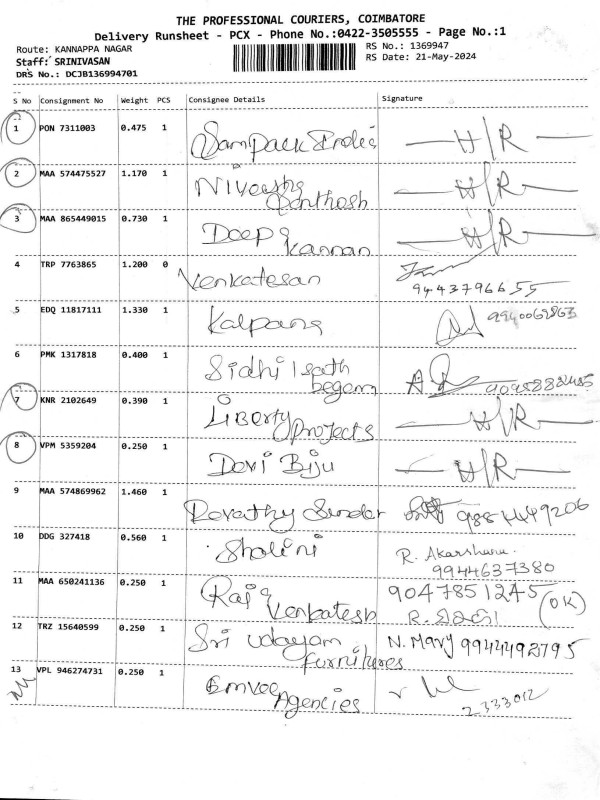 THE PROFESSIONAL COURIERS, COIMBATORE
Delivery Runsheet - PCX - Phone No.:0422-3505555 - Page No.:1
Route: KANNAPPA NAGAR
RS No.: 1369947
Staff: SRINIVASAN
RS Date: 21-May-2024
DRS No.: DCJB136994701
S No Consignment No Weight PCS Consignee Details Signature
1 PON 7311003 0.475 1 Sampack India H/R
2 MAA 574475527 1.170 1 Santhosh H/R
3 MAA 865449015 0.730 1 Deepa Kannan H/R
4 TRP 7763865 1.200 0 Venkatesan
9443796655
5 EDQ 11817111 1.330 1 Kalpana 9940062863
6 PMK 1317818 0.400 1 Sidhi begam
7 KNR 2102649 0.390 1 Liberty Projects H/R
8 VPM 5359204 0.250 1 Devi Biju H/R
9 MAA 574869962 1.460 1 Revathy Sunder
10 DDG 327418 0.560 1 Shalini R.
9944637380
11 MAA 650241136 0.250 1 Raja Venkatesh 9047851245 (OK)
R.
12 TRZ 15640599 0.250 1 Sri Udayam Furnitures N. Mary 9944492795
13 VPL 946274731 0.250 1 Emvee Agencies
2333012